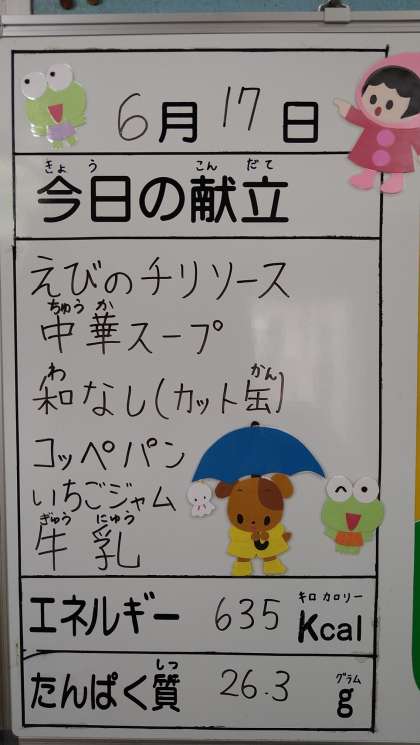 6月17日
きょう こんだて
今日の献立
えびのチリソース
ちゅうか
中華スープ
わ かん
和なし(カット缶)
コッペパン
いちごジャム
ぎゅうにゅう
牛乳
キロ カロリー
エネルギー 635 Kcal
しつ グラム
たんぱく質 26.3 g